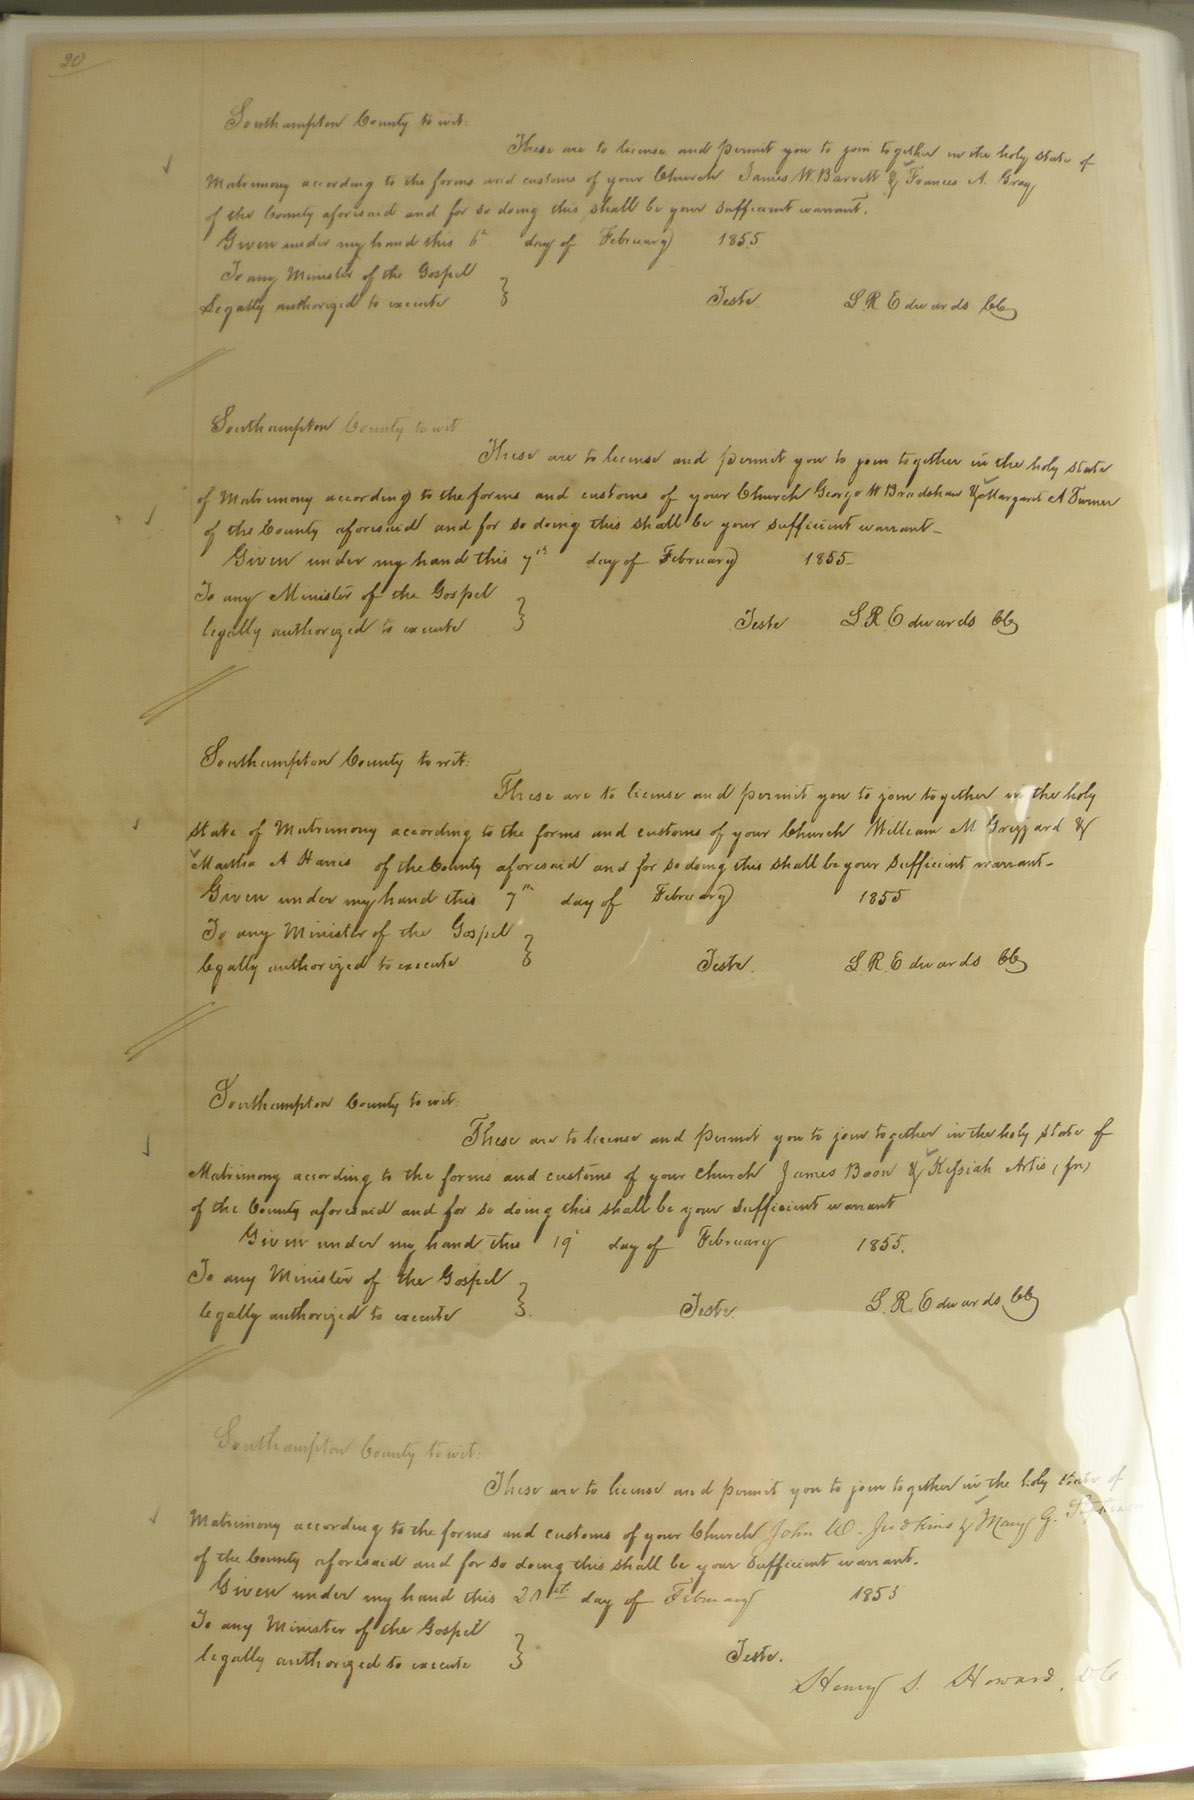 20
Southampton County to wit:
These are to license and permit you to join together in the holy state of
Matrimony according to the forms and customs of your Church James W. Barrett & Frances A. Gray
of the County aforesaid and for so doing this shall be your sufficient warrant.
Given under my hand this 6th day of February 1855
To any Minister of the Gospel }
Legally authorized to execute Teste. L. R. Edwards CC
Southampton County to wit
These are to license and permit you to join together in the holy state
of Matrimony according to the forms and customs of your Church George W Bradshaw & Margaret A Turner
of the County aforesaid and for so doing this shall be your sufficient warrant—
Given under my hand this 7th day of February 1855—
To any Minister of the Gospel }
legally authorized to execute Teste L R. Edwards CC
Southampton County to wit:
These are to license and permit you to join together in the holy
state of Matrimony according to the forms and customs of your Church William M Grizzard &
Martha A Harris of the County aforesaid and for so doing this shall be your sufficient warrant—
Given under my hand this 7th day of February 1855
To any Minister of the Gospel }
legally authorized to execute Teste. L. R. Edwards CC
Southampton County to wit:
These are to license and permit you to join together in the holy state of
Matrimony according to the forms and customs of your Church James Boon & Kessiah Artis (fn)
of the County aforesaid and for so doing this shall be your sufficient warrant
Given under my hand this 19th day of February 1855.
To any Minister of the Gospel }
legally authorized to execute Teste. L. R. Edwards CC
Southampton County to wit:
These are to license and permit you to join together in the holy state of
Matrimony according to the forms and customs of your Church John W. Judkins & Mary G.
of the County aforesaid and for so doing this shall be your sufficient warrant.
Given under my hand this 21st day of February 1855
To any Minister of the Gospel }
legally authorized to execute Teste.
Henry S. Howard, DC.